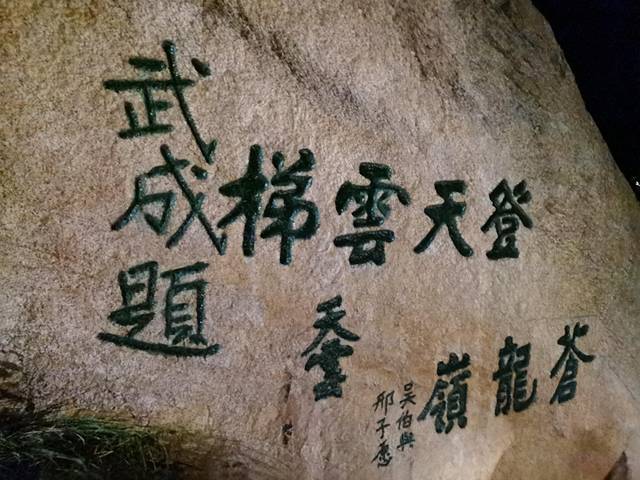 登天雲梯
武成題
蒼龍嶺
吳伯與
邢子愿
天